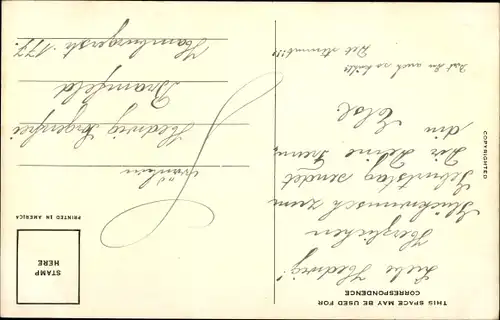 THIS SPACE MAY BE USED FOR
CORRESPONDENCE
Liebe Hedwig!
Herzlichen
Glückwunsch zum
Geburtstag sendet
Dir Deine
Elsk
Ist
auch so
COPYRIGHTED
STAMP
HERE
PRINTED IN AMERICA
Fräulein
Hedwig Sorgenfrei
Bramfeld
Hamburgerstr. 177.